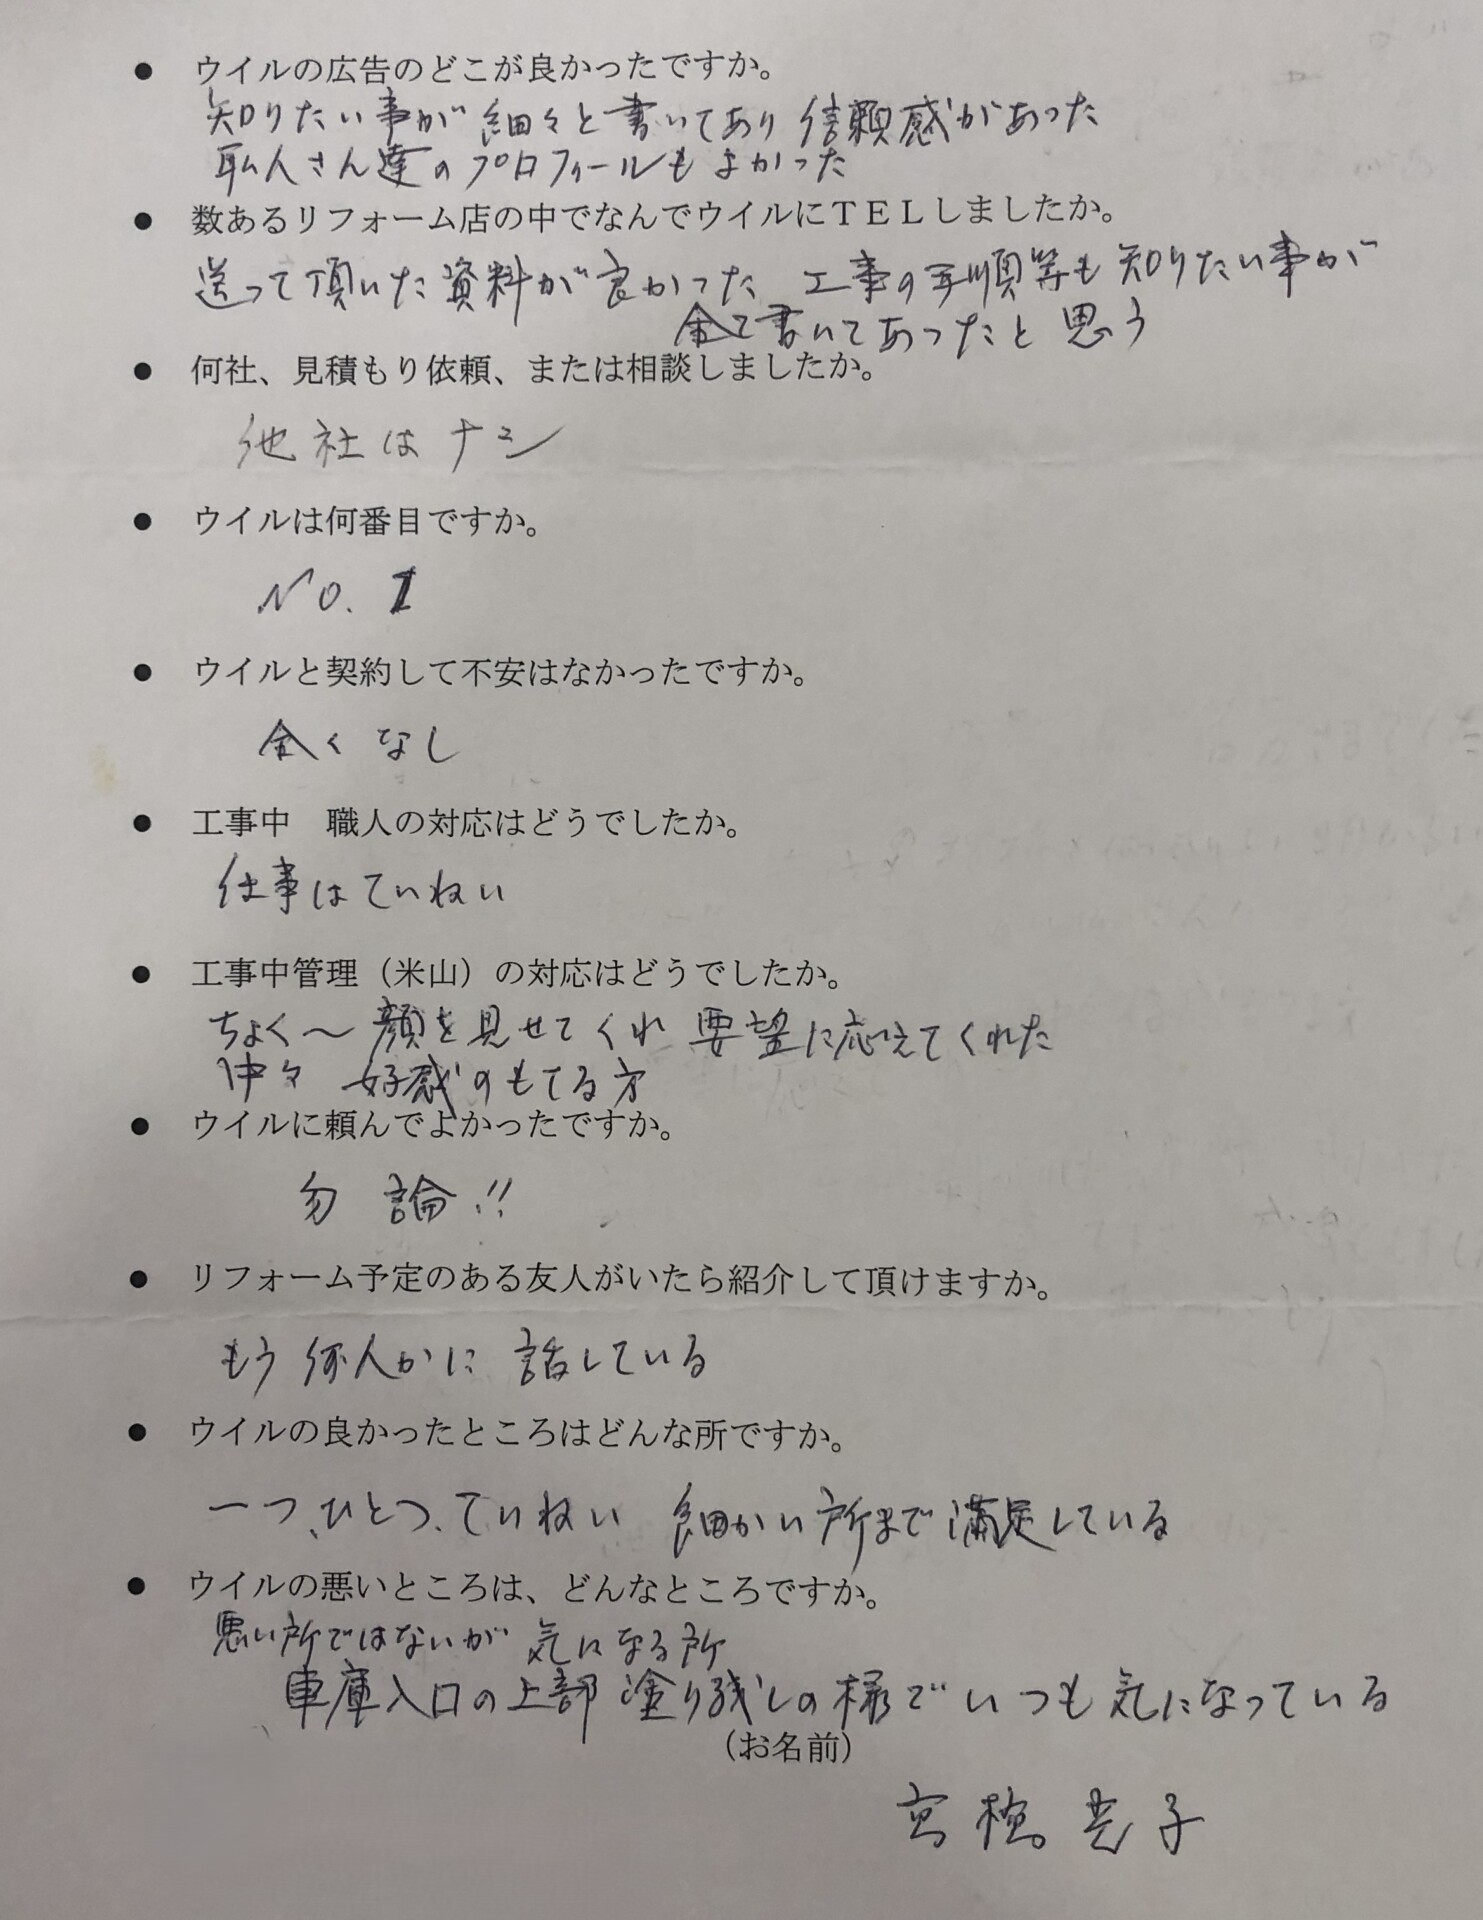 ● ウイルの広告のどこが良かったですか。
知りたい事が細々と書いてあり信頼感があった
職人さん達のプロフィールもよかった
● 数あるリフォーム店の中でなんでウイルにＴＥＬしましたか。
送って頂いた資料が良かった 工事の手順等も知りたい事が
全て書いてあったと思う
● 何社、見積もり依頼、または相談しましたか。
他社はナシ
● ウイルは何番目ですか。
NO. 1
● ウイルと契約して不安はなかったですか。
全くなし
● 工事中　職人の対応はどうでしたか。
仕事はていねい
● 工事中管理（米山）の対応はどうでしたか。
ちょく〜顔を見せてくれ 要望に応えてくれた
仲々 好感のもてる方
● ウイルに頼んでよかったですか。
勿論!!
● リフォーム予定のある友人がいたら紹介して頂けますか。
もう何人かに話している
● ウイルの良かったところはどんな所ですか。
一つ、ひとつ、ていねい 細かい所まで満足している
● ウイルの悪いところは、どんなところですか。
悪い所ではないが 気になる所
車庫入口の上部 塗り残しの様でいつも気になっている
（お名前）
高橋 光子